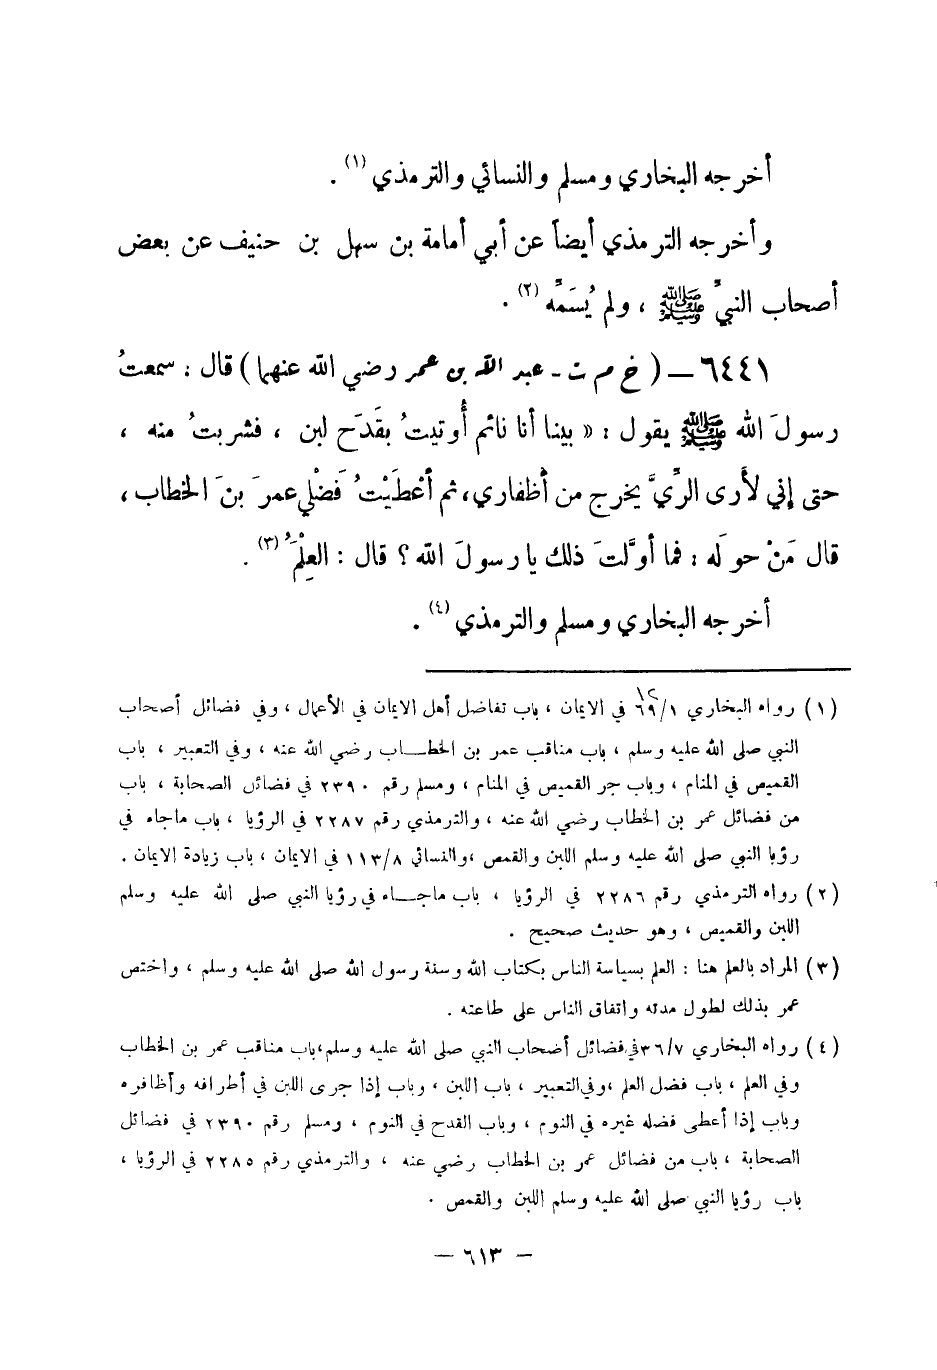 أخرجه البخاري ومسلم والنسائي والترمذي (١) .
وأخرجه الترمذي أيضاً عن أبي أمامة بن سهل بن حنيف عن بعض
أصحاب النبيِّ ﷺ ، ولم يُسَمِّه (٢) .
٦٤٤١ – ( خ م ت - عبد الله بن عمر رضي الله عنهما ) قال : سمعتُ
رسولَ الله ﷺ يقول : « بينا أنا نائم أُوتيتُ بقَدَح لبن ، فشربتُ منه ،
حتى إني لأرى الرِّيَّ يخرج من أظفاري، ثم أعْطَيْتُ فَضْلي عمرَ بنَ الخطاب ،
قال مَنْ حولَه : فما أوَّلتَ ذلك يا رسولَ الله ؟ قال : العِلْمَ (٣) .
أخرجه البخاري ومسلم والترمذي (٤) .
(١) رواه البخاري ٦٩/١ في الايمان ، باب تفاضل أهل الايمان في الأعمال ، وفي فضائل أصحاب
النبي صلى الله عليه وسلم ، باب مناقب عمر بن الخطـــاب رضي الله عنه ، وفي التعبير ، باب
القميص في المنام ، وباب جر القميص في المنام ، ومسلم رقم ٢٣٩٠ في فضائل الصحابة ، باب
من فضائل عمر بن الخطاب رضي الله عنه ، والترمذي رقم ٢٢٨٧ في الرؤيا ، باب ماجاء في
رؤيا النبي صلى الله عليه وسلم اللبن والقمص ،والنسائي ١١٣/٨ في الايمان ، باب زيادة الايمان .
(٢) رواه الترمذي رقم ٢٢٨٦ في الرؤيا ، باب ماجـــاء في رؤيا النبي صلى الله عليه وسلم
اللبن والقميص ، وهو حديث صحيح .
(٣) المراد بالعلم هنا : العلم بسياسة الناس بكتاب الله وسنة رسول الله صلى الله عليه وسلم ، واختص
عمر بذلك لطول مدته واتفاق الناس على طاعته .
(٤) رواه البخاري ٣٦/٧ في فضائل أصحاب النبي صلى الله عليه وسلم،باب مناقب عمر بن الخطاب
وفي العلم ، باب فضل العلم ،وفي التعبير ، باب اللبن ، وباب إذا جرى اللبن في أطرافه وأظافره
وباب إذا أعطى فضله غيره في النوم ، وباب القدح في النوم ، ومسلم رقم ٢٣٩٠ في فضائل
الصحابة ، باب من فضائل عمر بن الخطاب رضي عنه ، والترمذي رقم ٢٢٨٥ في الرؤيا ،
باب رؤيا النبي صلى الله عليه وسلم اللبن والقمص .
– ٦١٣ –